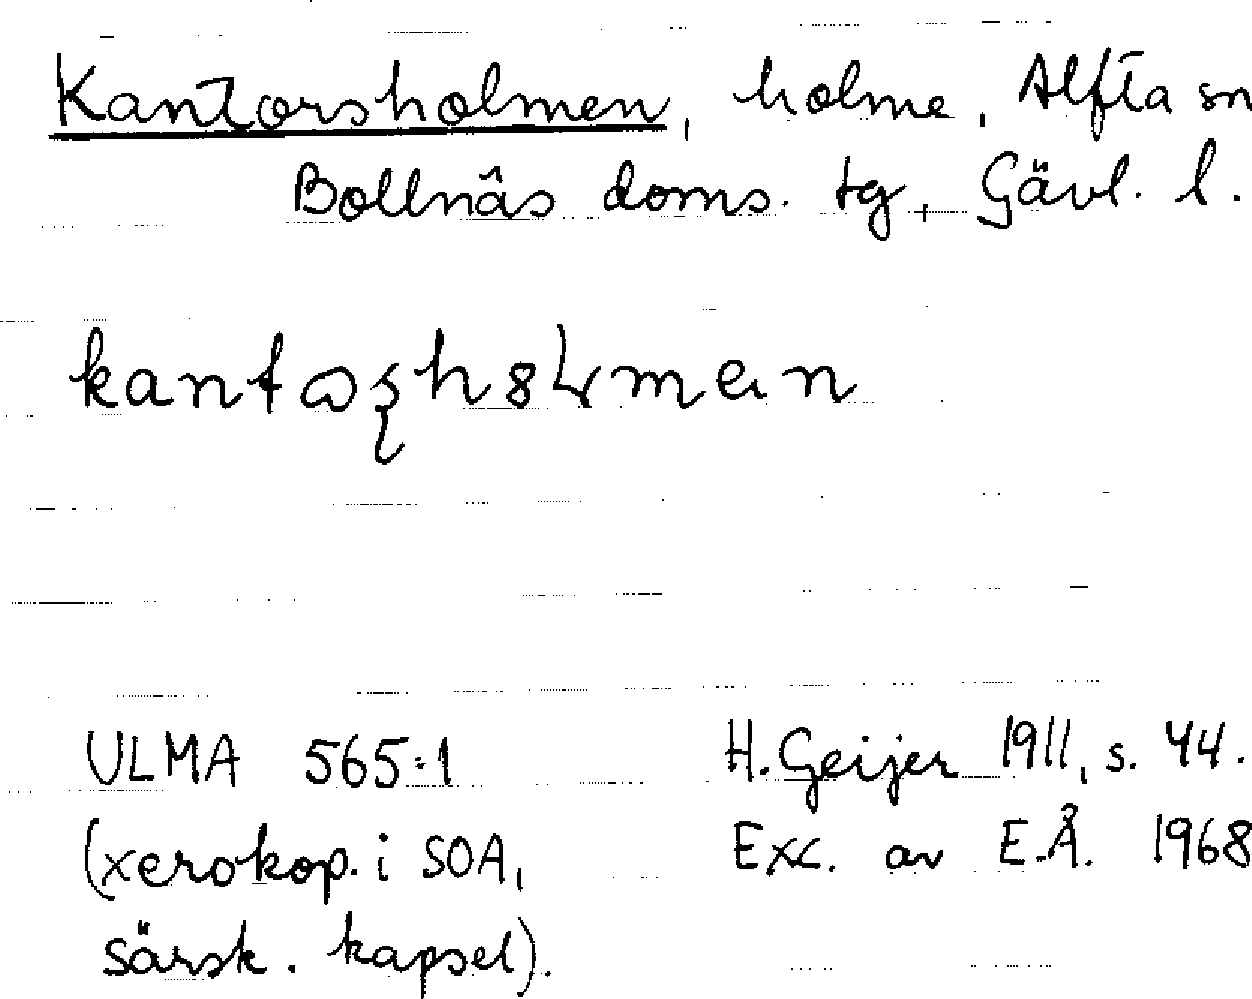 Kantorsholmen, holme, Alfta sn
Bollnäs doms. tg, Gävl. l.
ULMA 565:1
(xerokop. i SOA,
särsk. kapsel).
H. Geijer 1911, s. 44.
Exc. av E.Å. 1968